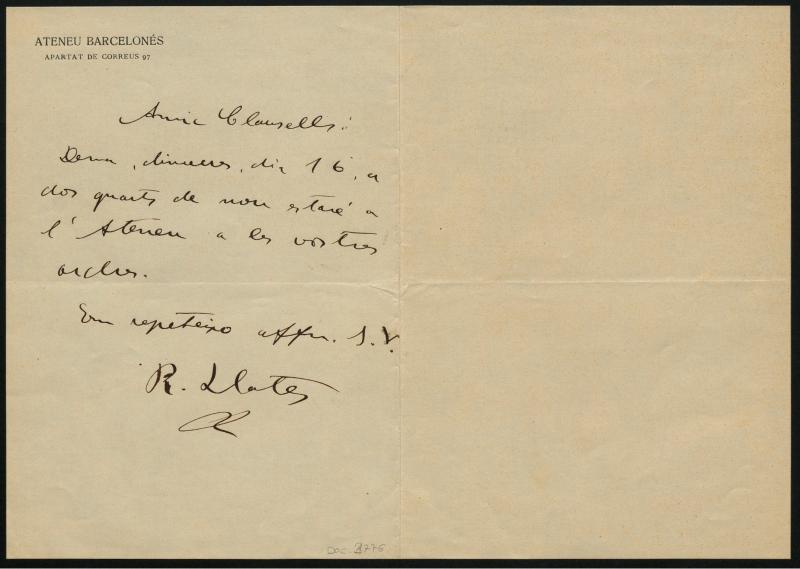 ATENEU BARCELONÉS
APARTAT DE CORREUS 97
Amic Clausells:
Demà, dimecres, dia 16, a
dos quarts de nou estaré a
l'Ateneu a les vostres
ordres.
Em repeteixo affm. S.V.
R. Llates
Doc 2776